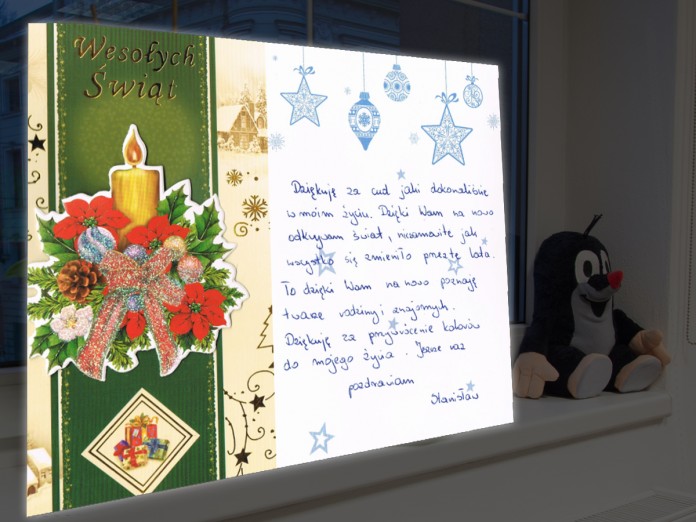 Wesołych
Świąt
Dziękuję za cud jaki dokonaliście
w moim życiu. Dzięki Wam na nowo
odkrywam świat, niesamowite jak
wszystko się zmieniło przez te lata.
To dzięki Wam na nowo poznaję
twarze rodziny i znajomych.
Dziękuję za przywrócenie kolorów
do mojego życia. Jeszcze raz
pozdrawiam
Stanisław